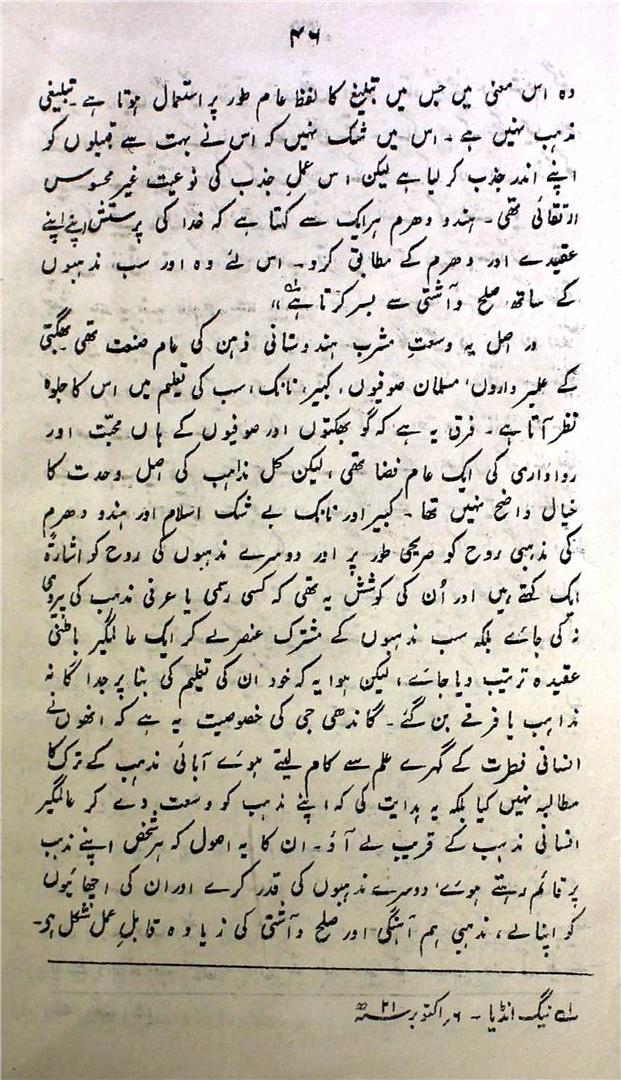 ۴۶
وہ اس معنی میں جس میں تبلیغ کا لفظ عام طور پر استعمال ہوتا ہے۔ تبلیغی
مذہب نہیں ہے۔ اس میں شک نہیں کہ اس نے بہت سے قبیلوں کو
اپنے اندر جذب کر لیا ہے لیکن اس عمل جذب کی نوعیت غیر محسوس
ارتقائی تھی۔ ہندو دھرم ہر ایک سے کہتا ہے کہ خدا کی پرستش اپنے اپنے
عقیدے اور دھرم کے مطابق کرو۔ اس لئے وہ اور سب مذہبوں
کے ساتھ صلح و آشتی سے بسر کرتا ہے"
در اصل یہ وسعتِ مشرب ہندوستانی ذہن کی عام صنعت تھی۔ بھگتی
کے علمبرداروں، مسلمان صوفیوں، کبیر، نانک، سب کی تعلیم میں اس کا جلوہ
نظر آتا ہے۔ فرق یہ ہے کہ گو بھکتوں اور صوفیوں کے ہاں محبت اور
رواداری کی ایک عام فضا تھی، لیکن کل مذاہب کی اصل وحدت کا
خیال واضح نہیں تھا۔ کبیر اور نانک بے شک اسلام اور ہندو دھرم
کی مذہبی روح کو صریحی طور پر اور دوسرے مذہبوں کی روح کو اشارۃً
ایک کہتے ہیں اور اُن کی کوشش یہ تھی کہ کسی رسمی یا عرفی مذہب کی پیروی
نہ کی جائے بلکہ سب مذہبوں کے مشترک عنصر لے کر ایک عالمگیر باطنی
عقیدہ ترتیب دیا جائے، لیکن ہوا یہ کہ خود ان کی تعلیم کی بنا پر جداگانہ
مذاہب یا فرقے بن گئے۔ گاندھی جی کی خصوصیت یہ ہے کہ انھوں نے
انسانی فطرت کے گہرے علم سے کام لیتے ہوئے آبائی مذہب کے ترک کا
مطالبہ نہیں کیا بلکہ یہ ہدایت کی کہ اپنے مذہب کو وسعت دے کر عالمگیر
انسانی مذہب کے قریب لے آؤ۔ ان کا یہ اصول کہ ہر شخص اپنے مذہب
پر قائم رہتے ہوئے، دوسرے مذہبوں کی قدر کرے اور ان کی اچھائیوں
کو اپنا لے، مذہبی ہم آہنگی اور صلح و آشتی کی زیادہ قابلِ عمل شکل ہو۔
لہ ینگ انڈیا۔ ۶ ؍اکتوبر ۲۱ سنہ